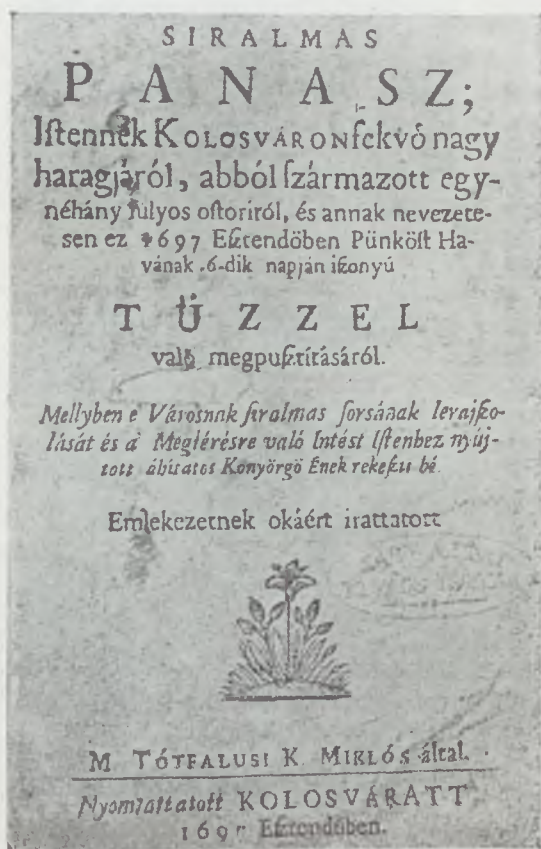 SIRALMAS
PANASZ;
Iſtennek KOLOSVÁRON fekvő nagy
haragjáról, abból ſzármazott egy-
néhány ſulyos oſtoriról, és annak nevezete-
sen ez 1697 Eſztendöben Pünköſt Ha-
vának 6-dik napján iſzonyú
TŰZZEL
való megpuſztításáról.
Mellyben e' Városnak ſiralmas ſorsának lerajſzo-
lását és a' Megtérésre való Intést Iſtenhez nyúj-
tott áhitatos Könyörgö Ének rekeſzti bé.
Emlekezetnek okáért irattatott
M TÓTFALUSI K. MIKLÓS által.
Nyomtattatott KOLOSVÁRATT
1697 Eſztendőben.